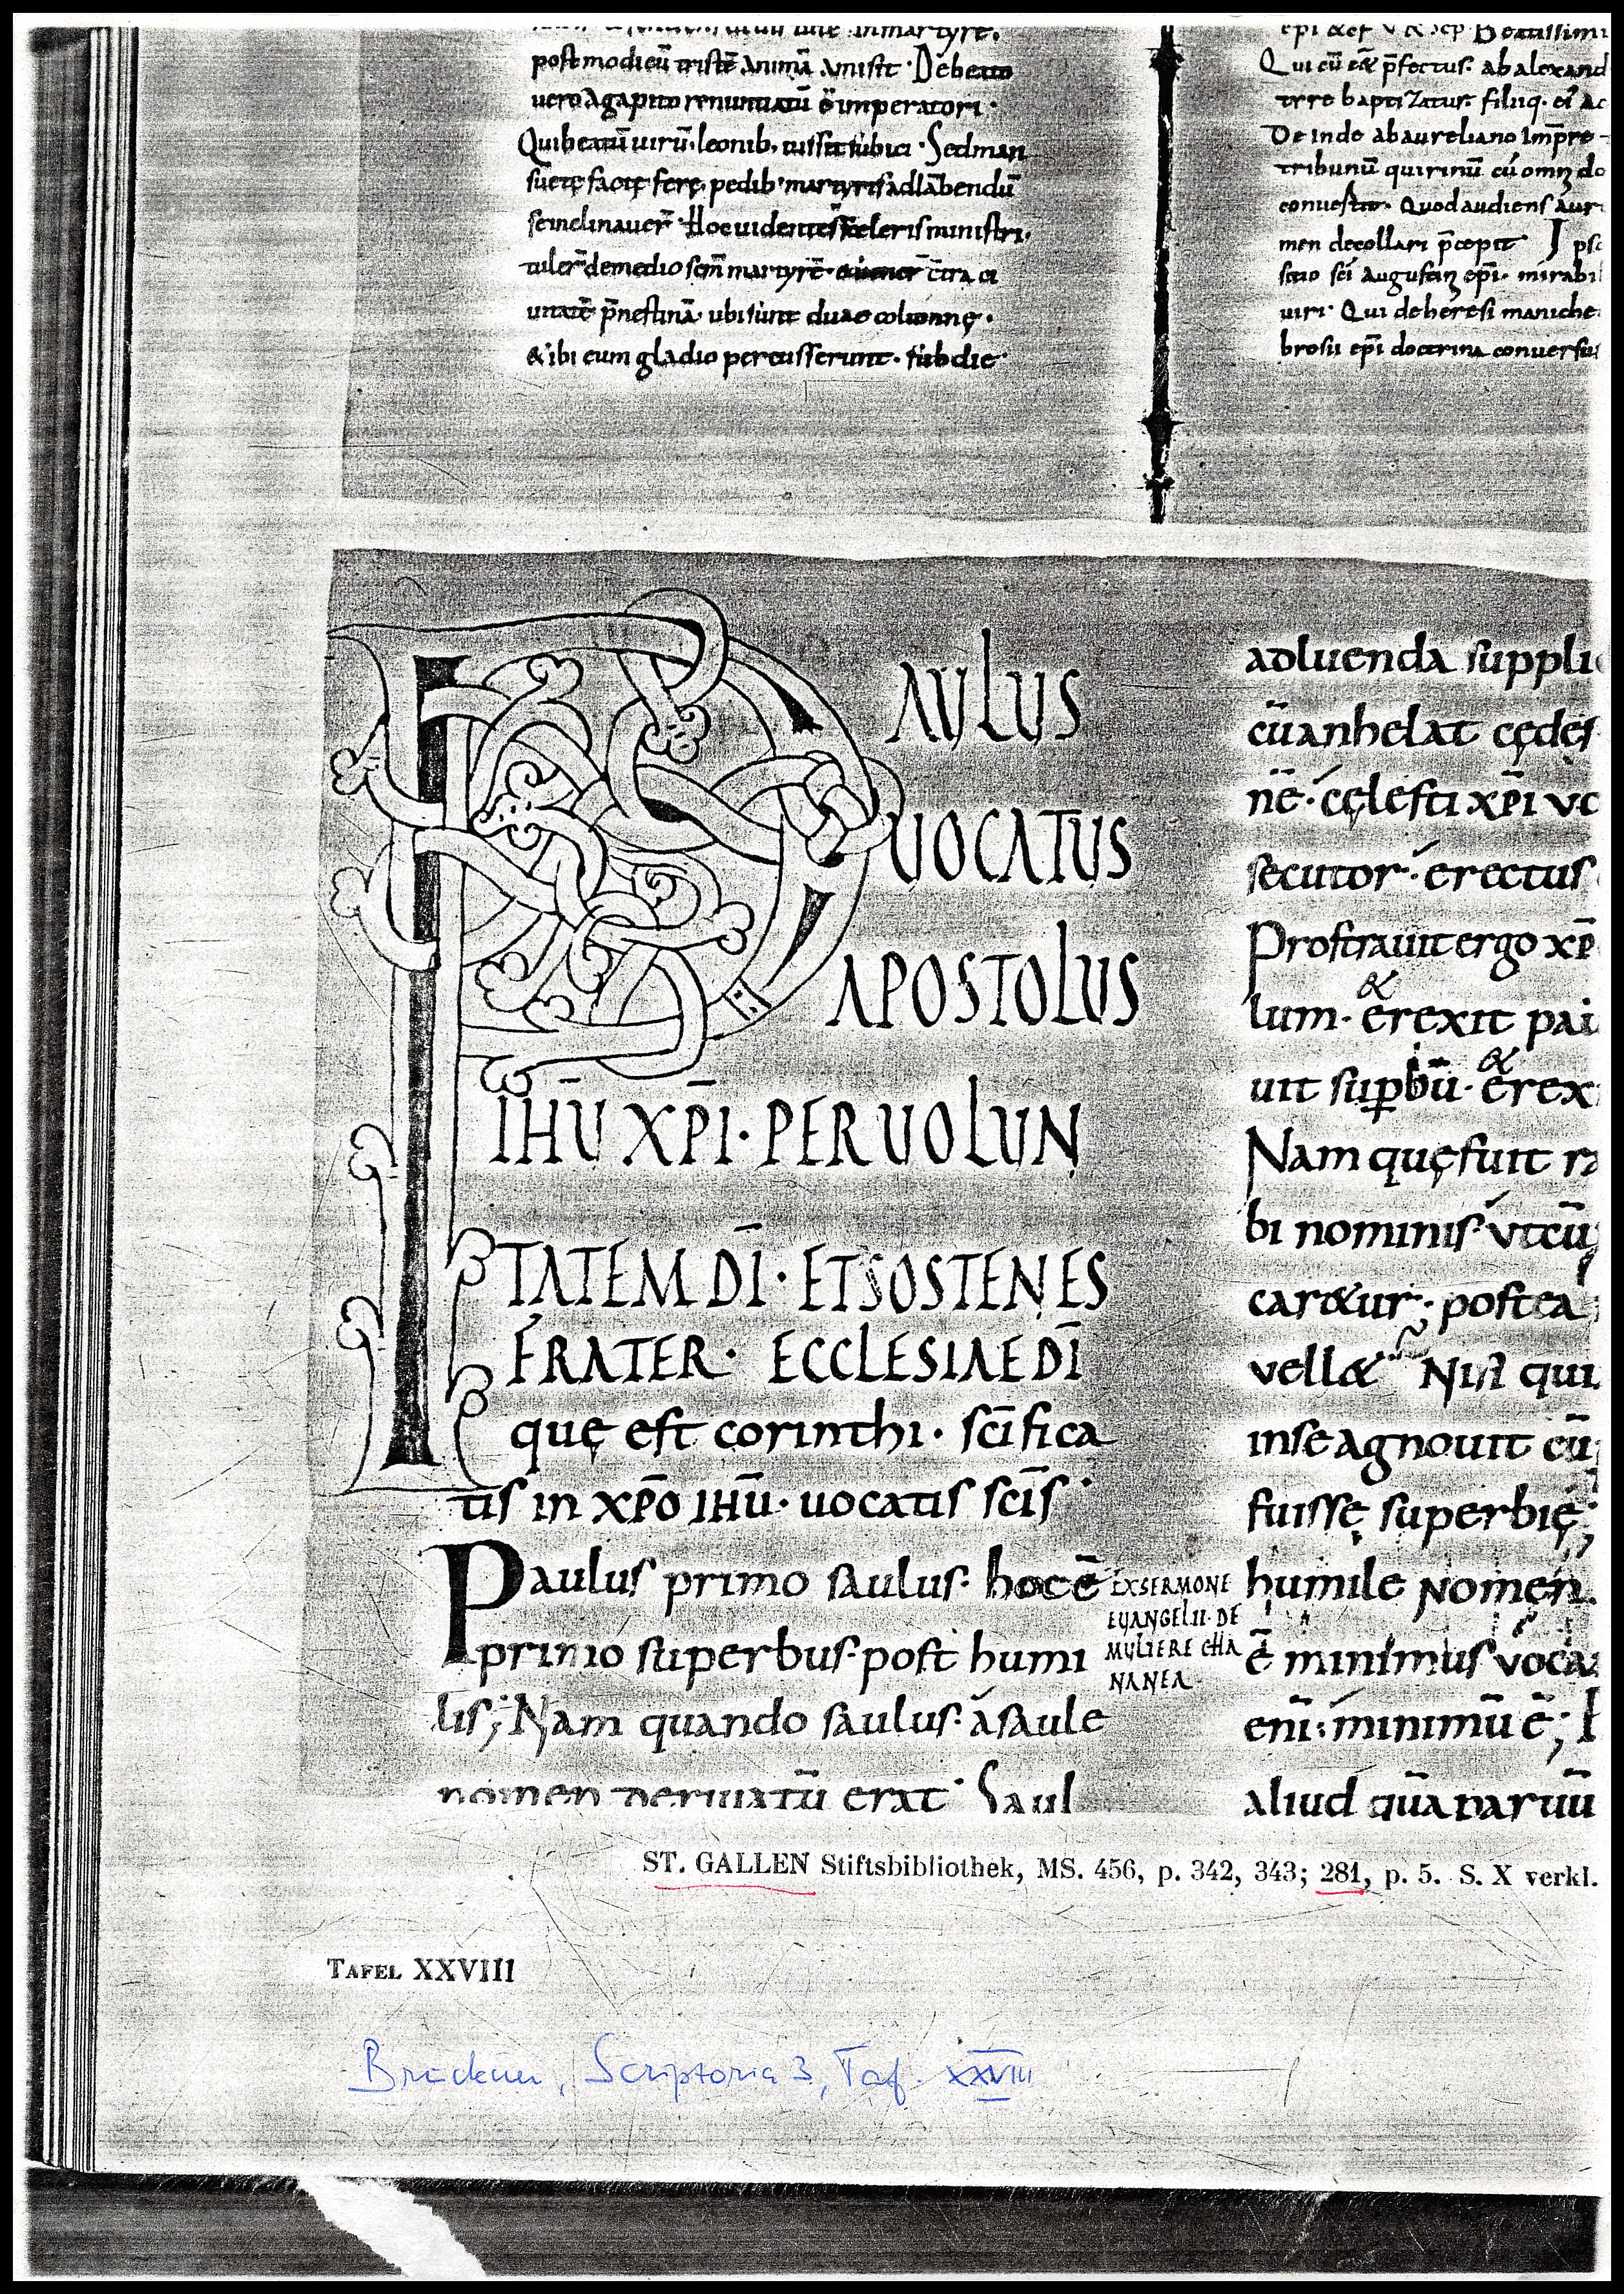 postmodicũ tristẽ animã amisit · Debetto
vero agapito renuntiatũ ẽ imperatori ·
Qui beatũ uirũ · leonib · iussit subici · Sed man
suetę factę ferę · pedib · martyris adlãbendũ
se inclinauer̃ · Hoc uidentes sceleris ministri ·
tuler̃ de medio scm̃ martyrẽ · c̃tra ci
uitatẽ p̃nestinã · ubi sunt duae colũnnę ·
& ibi eum gladio percusserunt · sub die
epi Beatissimi
Qui cũ p̃fectus · ab alexand
trre baptizatus · filiiq · ei
De inde ab aureliano Imp̃re
tribunũ quirinũ cũ omĩ do
conuestio · Quod audiens aur
men decollari p̃cepit · Ipso
sitio sc̃i augustini ep̃i · mirabil
uiri · Qui de heresi maniche
brosii ep̃i doctrina conuersus
PAULUS
UOCATUS
APOSTOLUS
IHŨ XP̃I · PER UOLUN
TATEM DĨ · ET SOSTENES
FRATER · ECCLESIAE DĨ
quę est corinthi · sc̃ifica
tis in xp̃o IHũ · uocatis sc̃is ·
Paulus primo saulus · hoc ẽ
primo superbus · post humi
lis ; Nam quando saulus · á saule
nomen deriuatũ erat · Saul
EX SERMONE
EUANGELII · DE
MULIERE CHA
NANEA ·
adluenda suppli
cũ anhelat cędes
nẽ · cęlesti xp̃i vo
secutor · érectus
Prostrauit ergo xp̃
lum · & erexit pau
uit sup̱bũ · & erex
Nam quę fuit
bi nominis · vtcũ
car&ur · postea
vell& Nisi qui
in se agnouit cũ
fuisse superbię ;
humile nomen .
ẽ minimus voca
enĩ : minimũ ẽ ;
aliud quã paruũ
ST. GALLEN Stiftsbibliothek, MS. 456, p. 342, 343; 281, p. 5. S. X verkl.
TAFEL XXVIII
Bruckner, Scriptoria 3, Taf. XXVIII